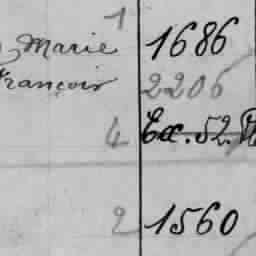 1
Marie 1686
François 2206
4 Ex. 52.
2 1560